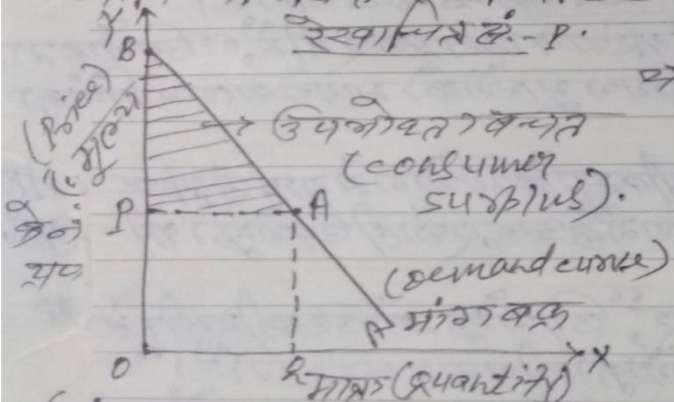 Y
रेखाचित्र सं.- 1.
B
(Price)
मूल्य
उपभोक्ता बचत
(consumer
surplus).
P
A
(Demand curve)
मांग वक्र
O
X
मात्रा (Quantity)